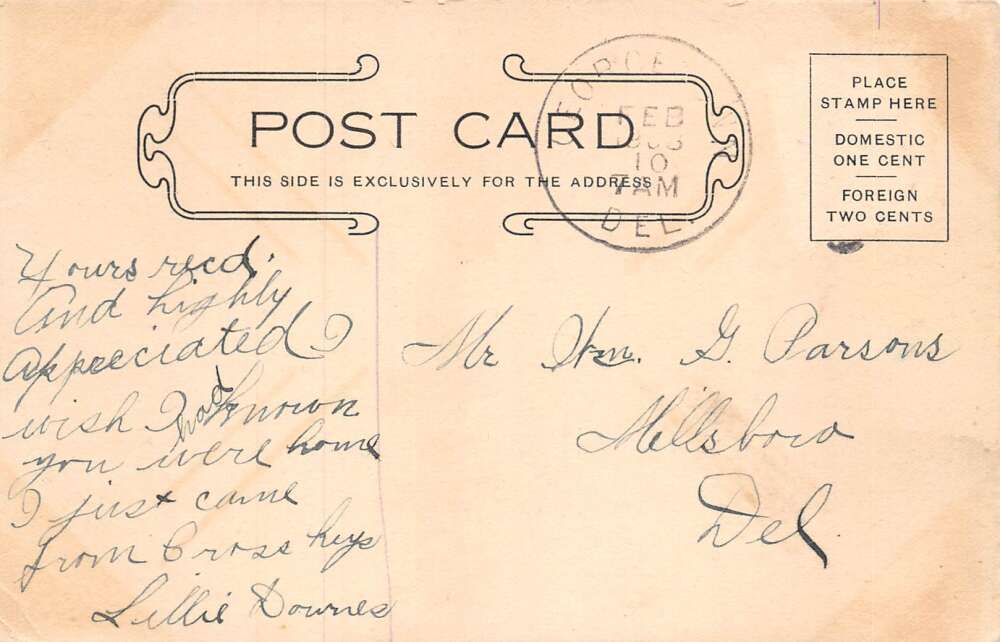 POST CARD
THIS SIDE IS EXCLUSIVELY FOR THE ADDRESS
FEB
10
7 AM
DEL.
PLACE
STAMP HERE
DOMESTIC
ONE CENT
FOREIGN
TWO CENTS
Yours recd.
And highly
appreciated I
wish I had known
you were home
I just came
from Cross keys
Lillie Downes
Mr Wm. G. Parsons
Millsboro
Del